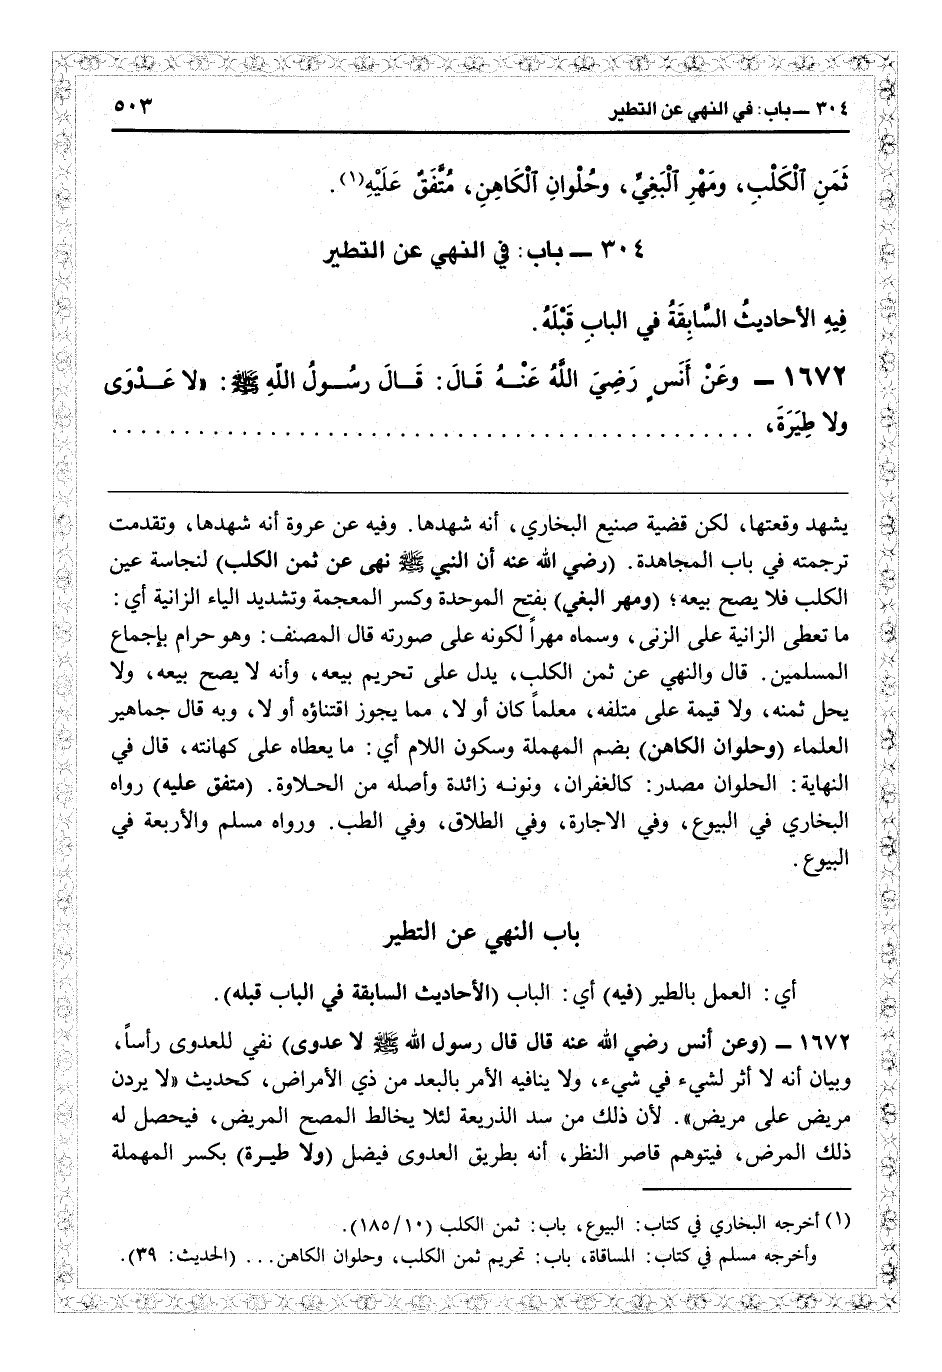 ٣٠٤ ـ باب: في النهي عن التطير ٥٠٣
ثَمَنِ الْكَلْبِ، ومَهْرِ الْبَغِيِّ، وحُلْوانِ الْكَاهِنِ، مُتَّفَقٌ عَلَيْهِ(١).
٣٠٤ ـ باب: في النهي عن التطير
فِيهِ الأحاديثُ السَّابِقَةُ في البابِ قَبْلَهُ.
١٦٧٢ ـ وعَنْ أَنَسٍ رَضِيَ اللَّهُ عَنْهُ قَالَ: قَالَ رسُولُ اللَّهِ ﷺ: «لا عَدْوَى
ولا طِيَرَةَ، . . . . . . . . . . . . . . . . . . . . . . . . . . . . . . . . . . . . . . . . . . . .
يشهد وقعتها، لكن قضية صنيع البخاري، أنه شهدها. وفيه عن عروة أنه شهدها، وتقدمت
ترجمته في باب المجاهدة. (رضي الله عنه أن النبي ﷺ نهى عن ثمن الكلب) لنجاسة عين
الكلب فلا يصح بيعه؛ (ومهر البغي) بفتح الموحدة وكسر المعجمة وتشديد الياء الزانية أي:
ما تعطى الزانية على الزنى، وسماه مهراً لكونه على صورته قال المصنف: وهو حرام بإجماع
المسلمين. قال والنهي عن ثمن الكلب، يدل على تحريم بيعه، وأنه لا يصح بيعه، ولا
يحل ثمنه، ولا قيمة على متلفه، معلماً كان أو لا، مما يجوز اقتناؤه أو لا، وبه قال جماهير
العلماء (وحلوان الكاهن) بضم المهملة وسكون اللام أي: ما يعطاه على كهانته، قال في
النهاية: الحلوان مصدر: كالغفران، ونونه زائدة وأصله من الحلاوة. (متفق عليه) رواه
البخاري في البيوع، وفي الاجارة، وفي الطلاق، وفي الطب. ورواه مسلم والأربعة في
البيوع.
باب النهي عن التطير
أي: العمل بالطير (فيه) أي: الباب (الأحاديث السابقة في الباب قبله).
١٦٧٢ ـ (وعن أنس رضي الله عنه قال قال رسول الله ﷺ لا عدوى) نفي للعدوى رأساً،
وبيان أنه لا أثر لشيء في شيء، ولا ينافيه الأمر بالبعد من ذي الأمراض، كحديث «لا يردن
مريض على مريض». لأن ذلك من سد الذريعة لئلا يخالط المصح المريض، فيحصل له
ذلك المرض، فيتوهم قاصر النظر، أنه بطريق العدوى فيضل (ولا طيرة) بكسر المهملة
(١) أخرجه البخاري في كتاب: البيوع، باب: ثمن الكلب (١٨٥/١٠).
وأخرجه مسلم في كتاب: المساقاة، باب: تحريم ثمن الكلب، وحلوان الكاهن... (الحديث: ٣٩).